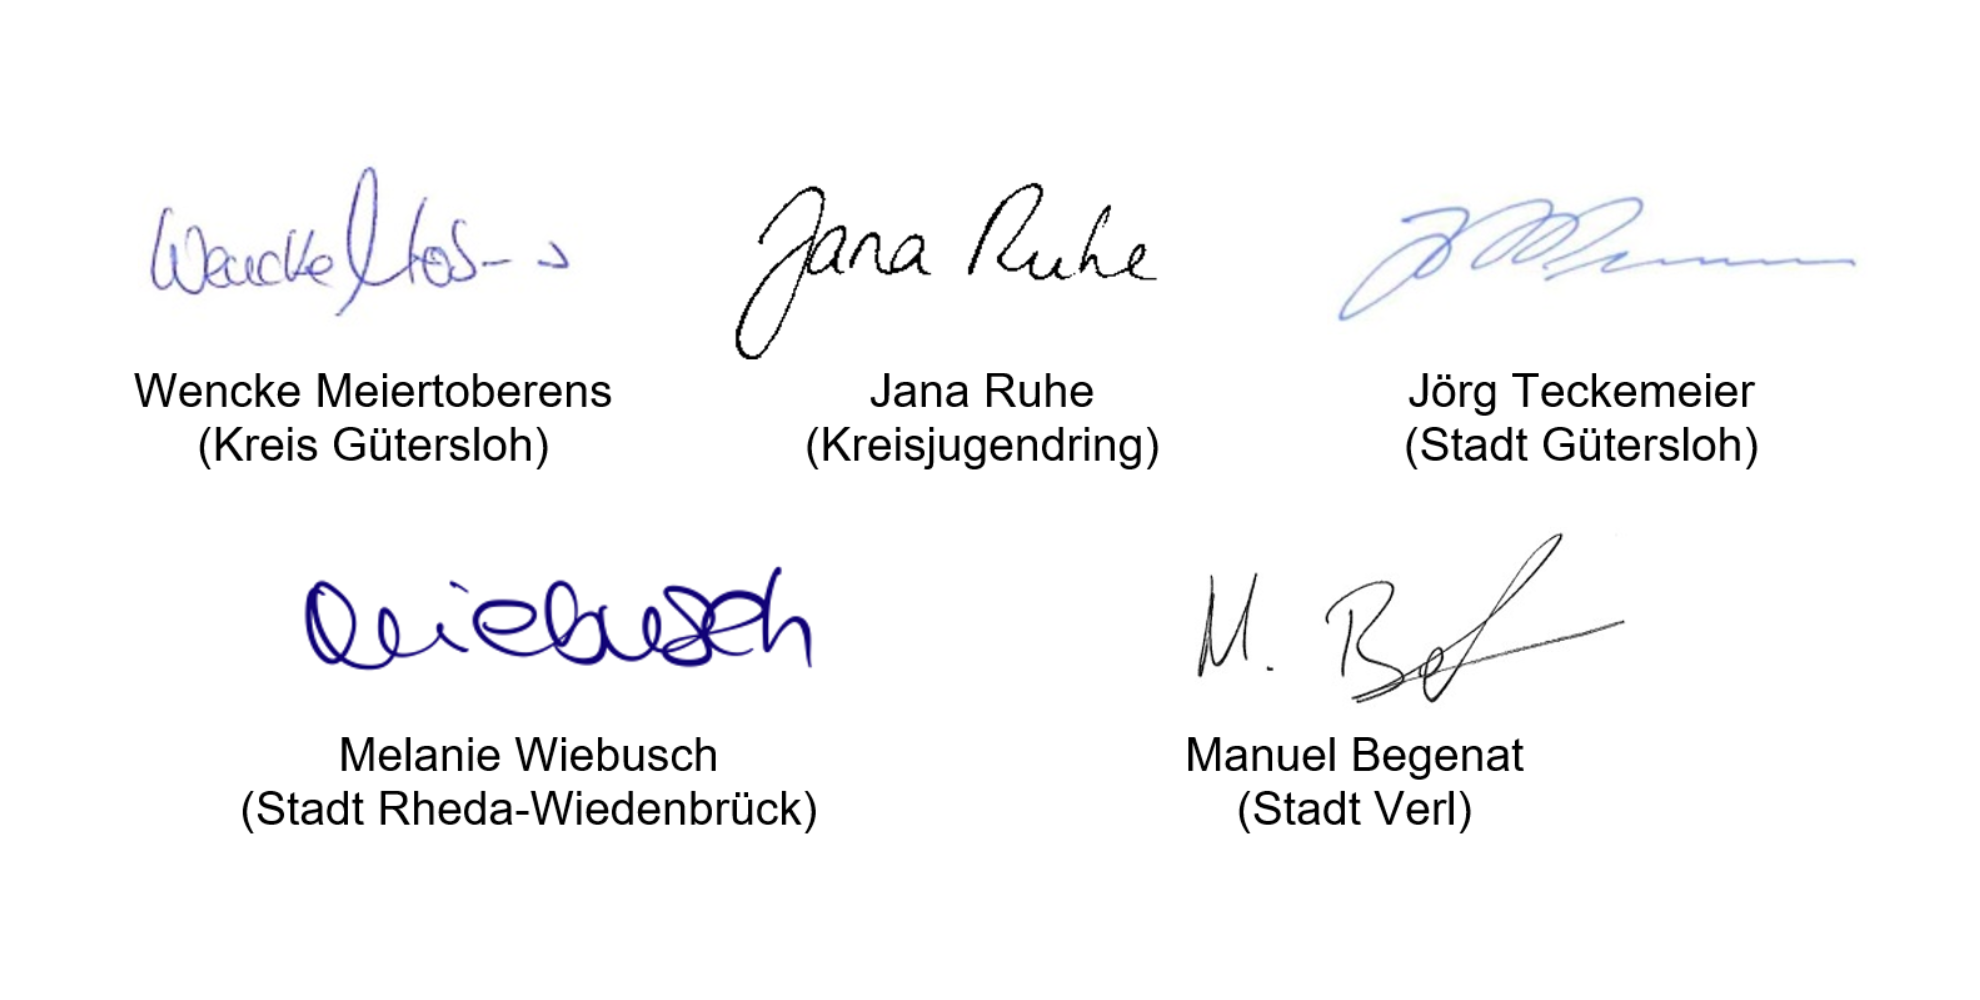 Wencke
Jana Ruhe
Wencke Meiertoberens
(Kreis Gütersloh)
Jana Ruhe
(Kreisjugendring)
Jörg Teckemeier
(Stadt Gütersloh)
Wiebusch
M. B
Melanie Wiebusch
(Stadt Rheda-Wiedenbrück)
Manuel Begenat
(Stadt Verl)